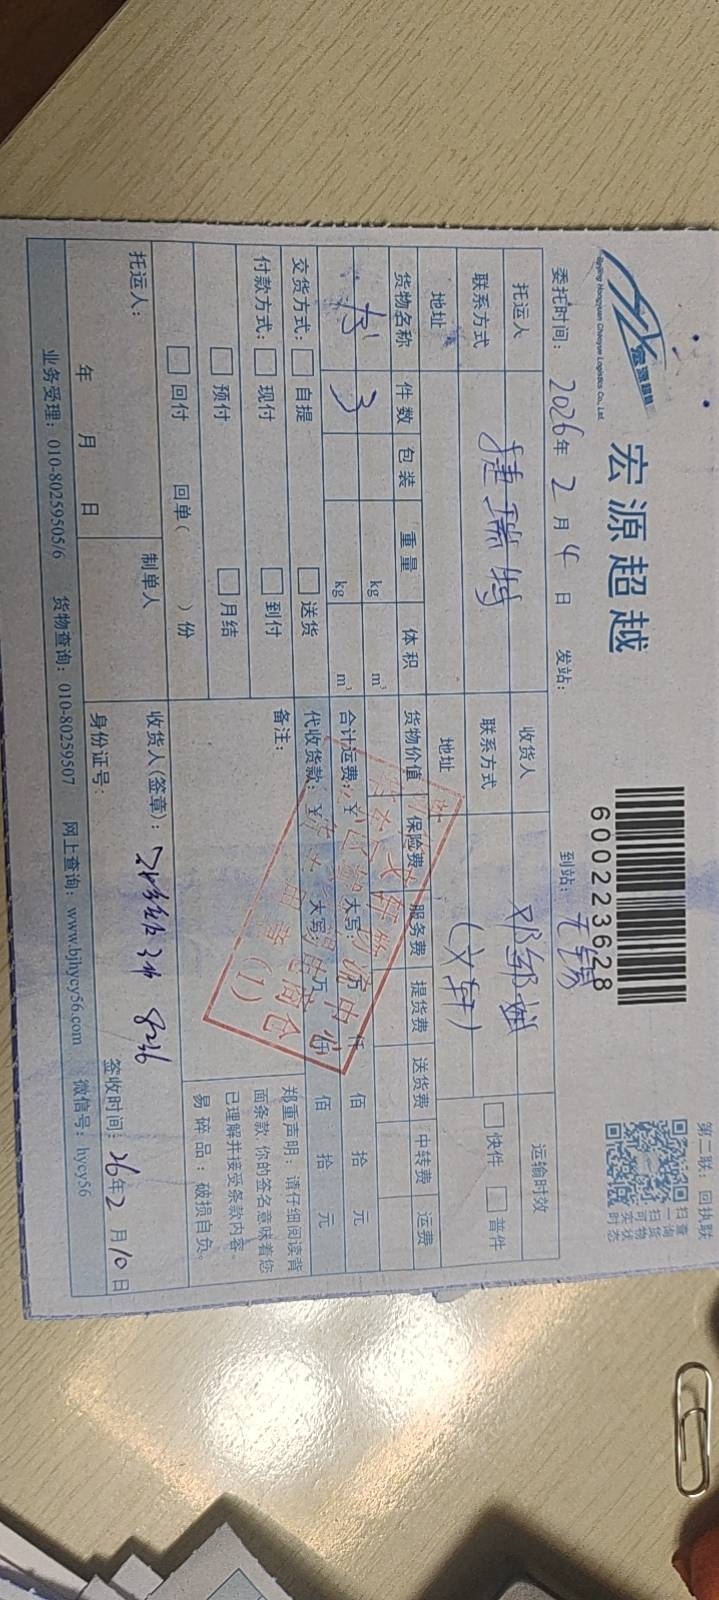 宏源超越
Beijing Hongyuan Chaoyue Logistics Co., Ltd.
宏源超越
600223628
第二联：回执联
扫一扫可实时
查询货物状态
委托时间：2026年2月4日 发站： 到站：无锡
托运人 收货人 邓邹 运输时效
联系方式 捷瑞特 联系方式 （文轩） 快件 普件
地址 地址
货物名称 件数 包装 重量 体积 货物价值 保险费 服务费 提货费 送货费 中转费 运费
书 3 kg m³
kg m³
合计运费：¥ 大写： 万 仟 佰 拾 元
交货方式： 自提 送货 代收货款：¥ 大写： 万 仟 佰 拾 元
付款方式： 现付 到付 备注：
预付 月结
回付 回单（ ）份
郑重声明：请仔细阅读背
面条款，你的签名意味着您
已理解并接受条款内容。
易碎品：破损自负。
托运人： 制单人 收货人（签章）： 3件 8236
年 月 日 身份证号： 签收时间：26年2月10日
业务受理：010-80259505/6 货物查询：010-80259507 网上查询：www.bjhycy56.com 微信号：hycy56